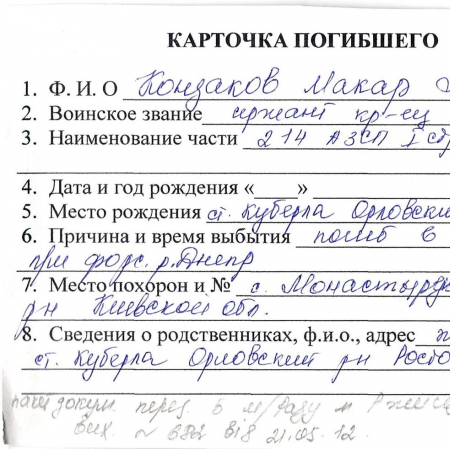 КАРТОЧКА ПОГИБШЕГО
1. Ф. И. О Конзаков Макар
2. Воинское звание сержант кр-ец
3. Наименование части 214 АЗСП I
4. Дата и год рождения « »
5. Место рождения ст. Куберла Орловский
6. Причина и время выбытия погиб в
при форс. р. Днепр
7. Место похорон и № с.
рн Киевской обл.
8. Сведения о родственниках, ф.и.о., адрес
ст. Куберла Орловский рн Росто
докум. перед. в м/базу
вих. № 682 від 21.05.12.